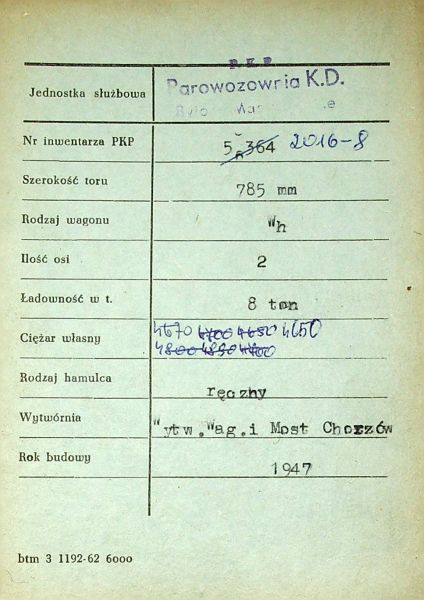 P.K.P
Jednostka służbowa Parowozownia K.D.
Nr inwentarza PKP 5 364 2016-8
Szerokość toru 785 mm
Rodzaj wagonu Wh
Ilość osi 2
Ładowność w t. 8 ton
4670 4700 4650 4650
Ciężar własny
4800 4890 4700
Rodzaj hamulca ręczny
Wytwórnia Wytw.Wag.i Most Chorzów
Rok budowy 1947
btm 3 1192-62 6000